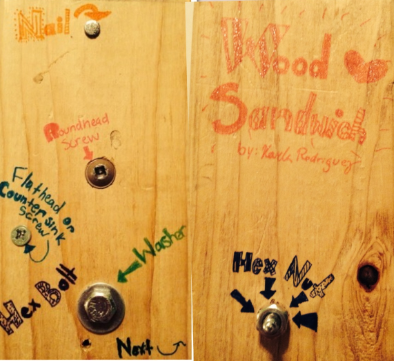 Nail
Roundhead
screw
Flathead on
Countersink
screw
Washer
Hex Bolt
Next
Wood
Sandwich
by: Karla Rodriguez
Hex Nut